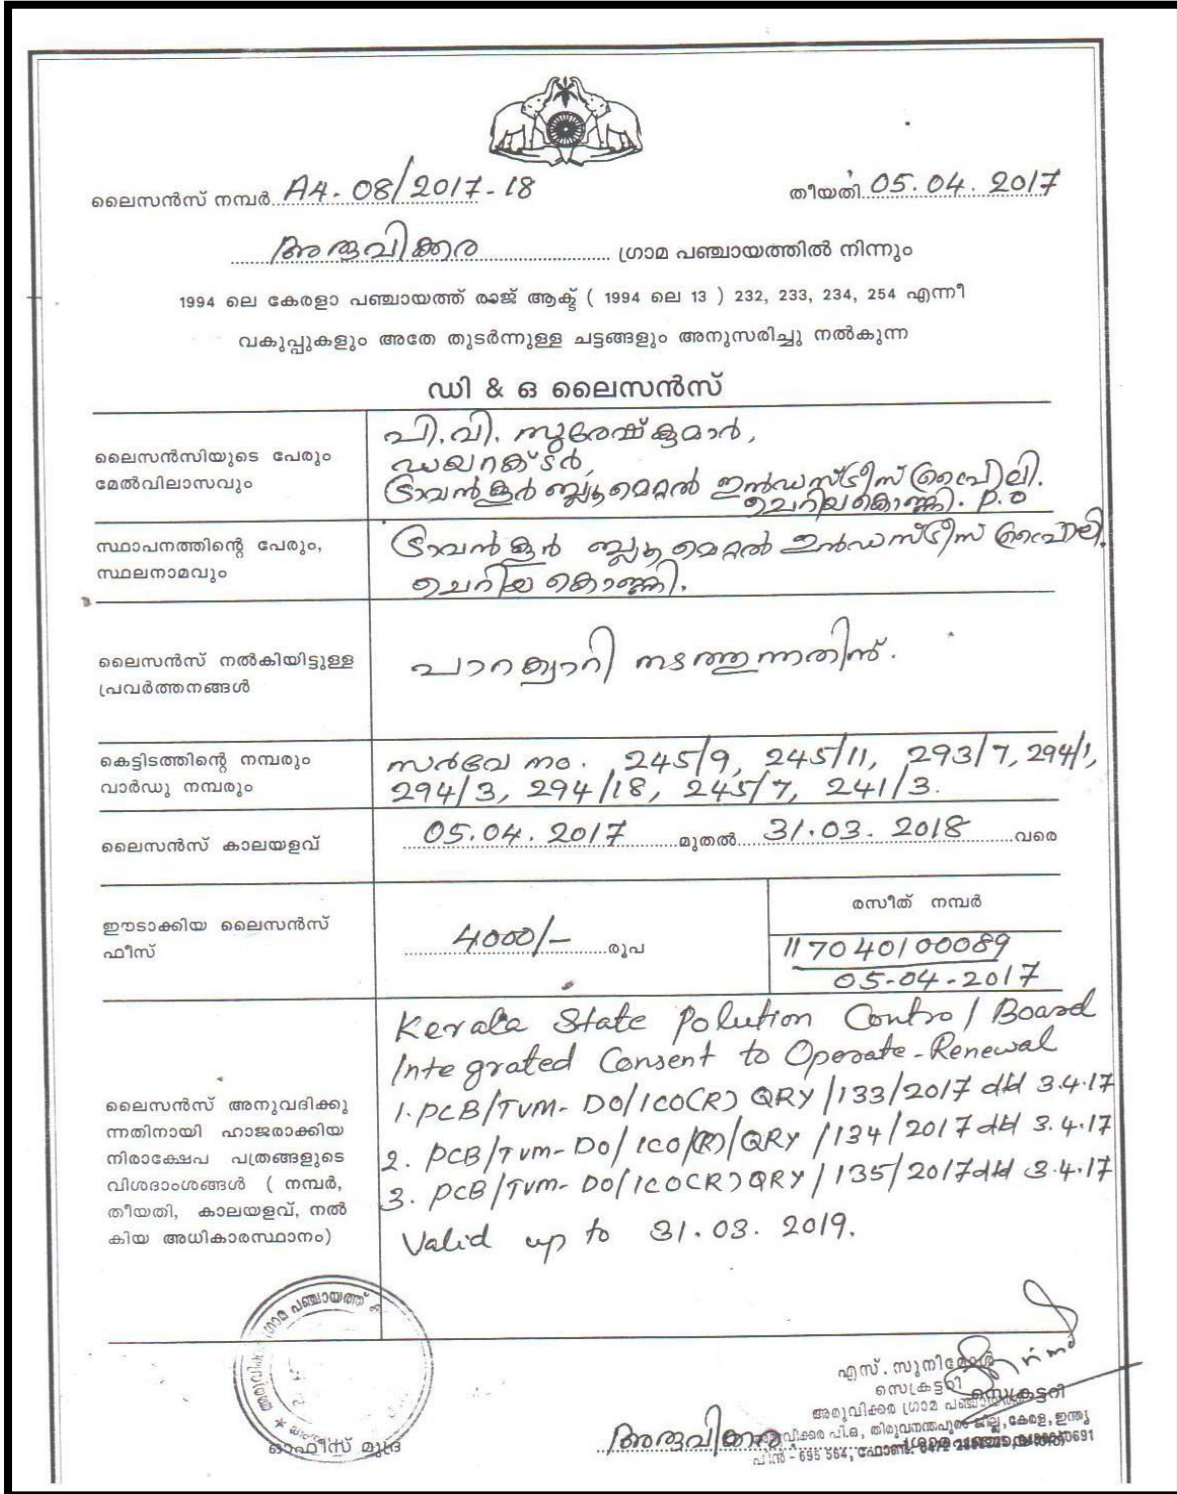 ലൈസൻസ് നമ്പർ A4-08/2017-18
തീയതി 05.04.2017
അരുവിക്കര ഗ്രാമ പഞ്ചായത്തിൽ നിന്നും
1994 ലെ കേരളാ പഞ്ചായത്ത് രാജ് ആക്ട് ( 1994 ലെ 13 ) 232, 233, 234, 254 എന്നീ
വകുപ്പുകളും അതേ തുടർന്നുള്ള ചട്ടങ്ങളും അനുസരിച്ചു നൽകുന്ന
ഡി & ഒ ലൈസൻസ്
ലൈസൻസിയുടെ പേരും
മേൽവിലാസവും
പി.വി. സുരേഷ്കുമാർ,
ഡയറക്ടർ,
ട്രാവൻകൂർ ബ്ലൂമെറ്റൽ ഇൻഡസ്ട്രീസ് പ്രൈ.ലി.
ചെറിയകൊണ്ണി. P.O
സ്ഥാപനത്തിന്റെ പേരും,
സ്ഥലനാമവും
ട്രാവൻകൂർ ബ്ലൂമെറ്റൽ ഇൻഡസ്ട്രീസ് പ്രൈ.ലി.
ചെറിയ കൊണ്ണി.
ലൈസൻസ് നൽകിയിട്ടുള്ള
പ്രവർത്തനങ്ങൾ
പാറക്വാറി നടത്തുന്നതിന്.
കെട്ടിടത്തിന്റെ നമ്പരും
വാർഡു നമ്പരും
സർവേ നം. 245/9, 245/11, 293/7, 294/1,
294/3, 294/18, 245/7, 241/3.
ലൈസൻസ് കാലയളവ്
05.04.2017 മുതൽ 31.03.2018 വരെ
ഈടാക്കിയ ലൈസൻസ്
ഫീസ്
4000/- രൂപ
രസീത് നമ്പർ
117040100089
05-04-2017
ലൈസൻസ് അനുവദിക്കു
ന്നതിനായി ഹാജരാക്കിയ
നിരാക്ഷേപ പത്രങ്ങളുടെ
വിശദാംശങ്ങൾ ( നമ്പർ,
തീയതി, കാലയളവ്, നൽ
കിയ അധികാരസ്ഥാനം)
Kerala State Polution Control Board
Integrated Consent to Operate-Renewal
1. PCB/TVM-DO/ICO(R) QRY/133/2017 dtd 3.4.17
2. PCB/TVM-DO/ICO/(R)/QRY/134/2017 dtd 3.4.17
3. PCB/TVM-DO/ICO(R) QRY/135/2017 dtd 3.4.17
Valid up to 31.03.2019.
ഗ്രാമ പഞ്ചായത്ത്
ഓഫീസ് മുദ്ര
എസ്. സുനിമോൾ
സെക്രട്ടറി
സെക്രട്ടറി
അരുവിക്കര ഗ്രാമ പഞ്ചായത്ത്
അരുവിക്കര പി.ഒ, തിരുവനന്തപുരം ജില്ല, കേരള, ഇന്ത്യ
പിൻ - 695 564, ഫോൺ: 0472
അരുവിക്കര